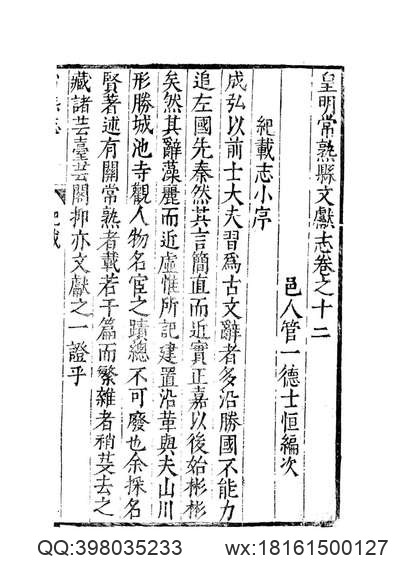 皇明常熟縣文獻志卷之十二
邑人管一德士恒編次
紀載志小序
成弘以前士大夫習為古文辭者多沿勝國不能力
追左國先秦然其言簡直而近實正嘉以後始彬彬
矣然其辭藻麗而近虛惟所記建置沿革與夫山川
形勝城池寺觀人物名宦之蹟總不可廢也余採名
賢著述有關常熟者載若干篇而繁雜者稍芟去之
藏諸芸臺芸閣抑亦文獻之一證乎
QQ:398035233 wx:18161500127